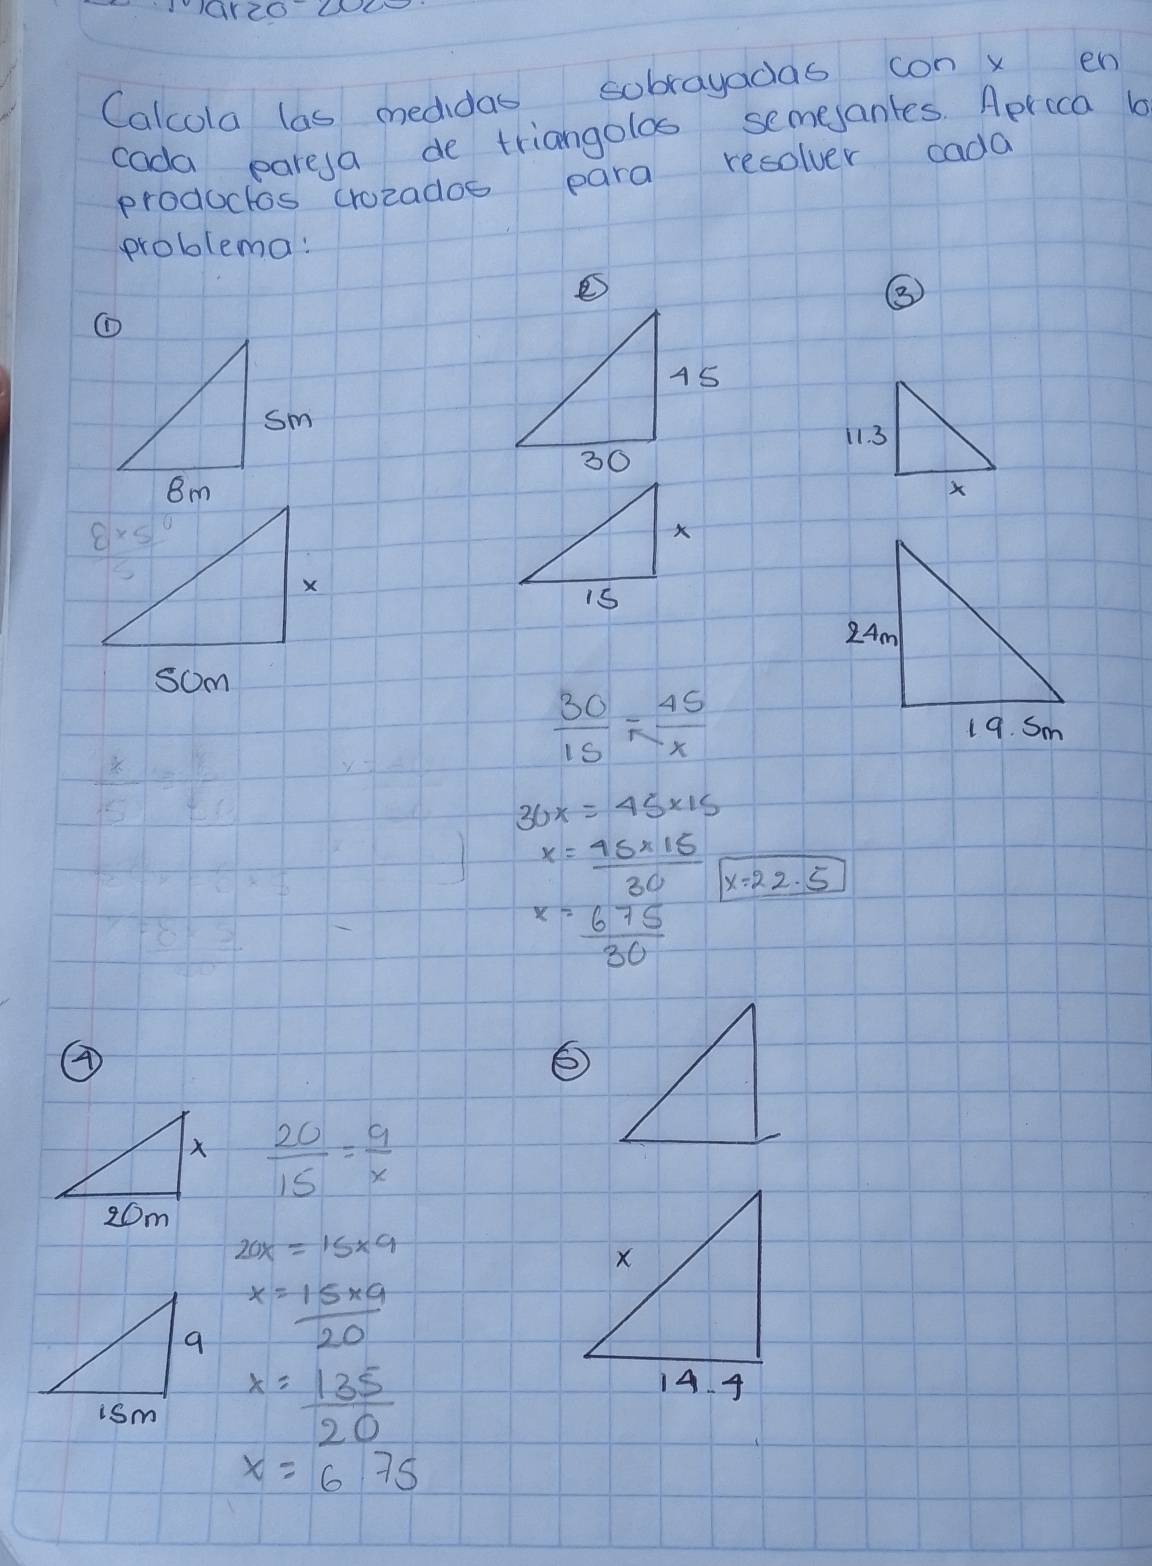 Marzo-202
Calcula las medidas sobrayadas con x en
cada pareja de triangolos semejantes. Aprica lo
productos crozados para resolver cada
problema:
①
5m
8m
x
50m
②
45
30
x
15
30/15 = 45/x
30x = 45x15
x = 45x15/30
x=22.5
x = 675/30
③
11.3
x
24m
19.5m
④
x
20m
9
15m
20/15 = 9/x
20x = 15x9
x = 15x9/20
x = 135/20
x = 6 75
⑤
x
14.4